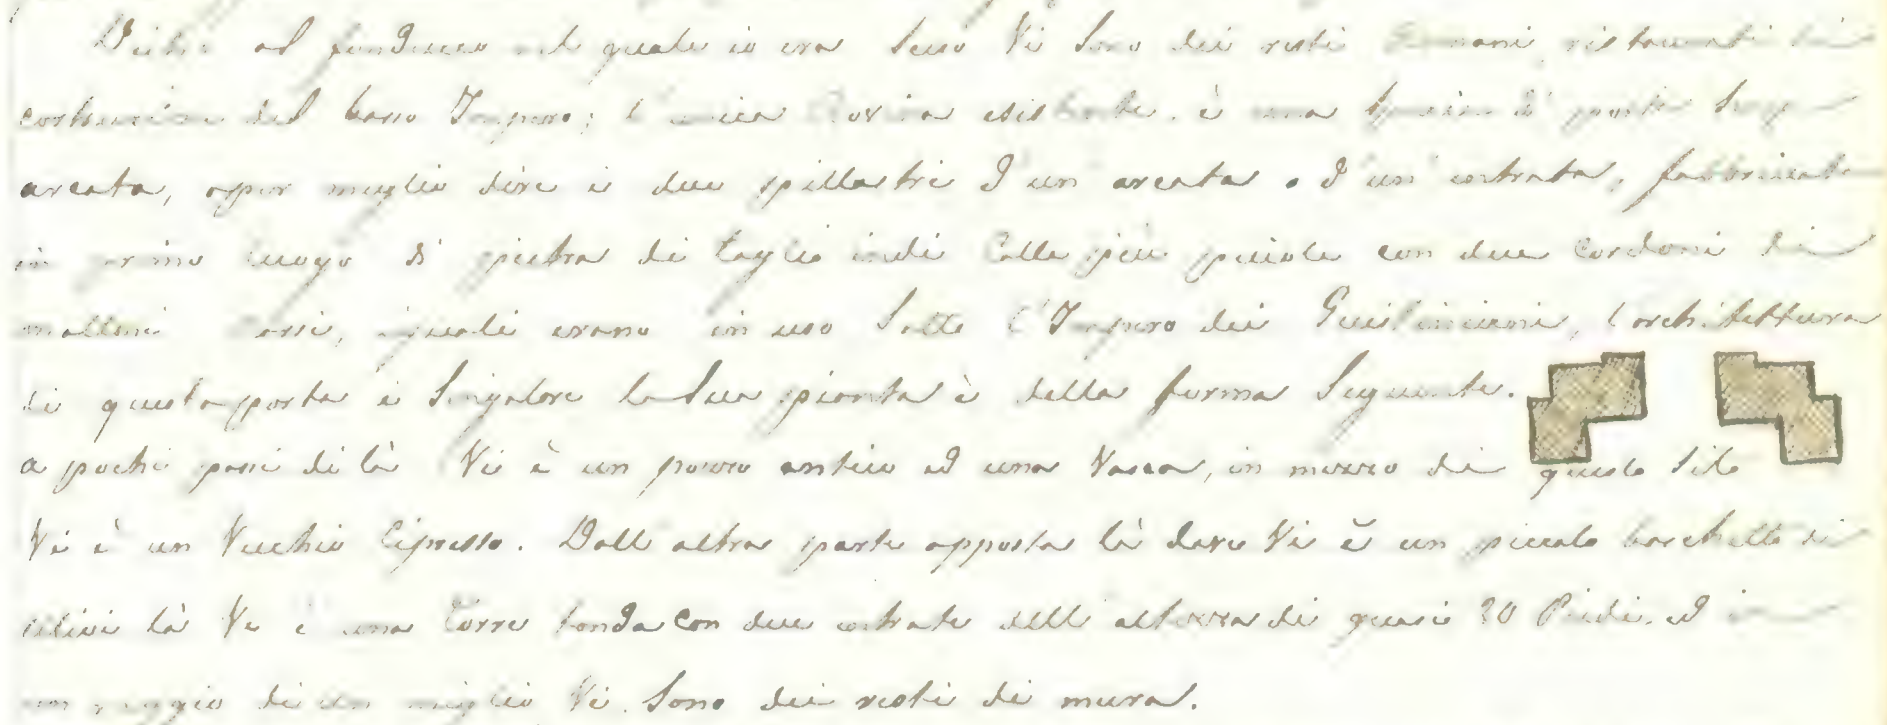 al fonduco nel quale io era Seso Vi Sono dei resti Romani ristaurati di
del basso Impero; l'unica Rovina esistente, è una Spezie di porta
arcata, opur meglio dire i due pillastri d'un arcata o d'un entrata, fabbricata
in primo luogo di pietra di taglio indi colle più piciole con due Cordoni di
mattoni i quali erano in uso Sotto l'Impero dei Guistiniani, l'architettura
di questa porta è Singolare la Sua pianta è della forma Seguente.
a pochi passi di là Vi è un pozzo antico ed una Vasca, in mezzo di questo Sito
Vi è un Vecchio Cipresso. Dall altra parte opposta là dove Vi è un piccolo boschetto di
ulivi là Vi è una Torre tonda con due entrate dell altezza di quasi 20 Piedi, ed in
un raggio di un miglio Vi Sono dei resti di mura.